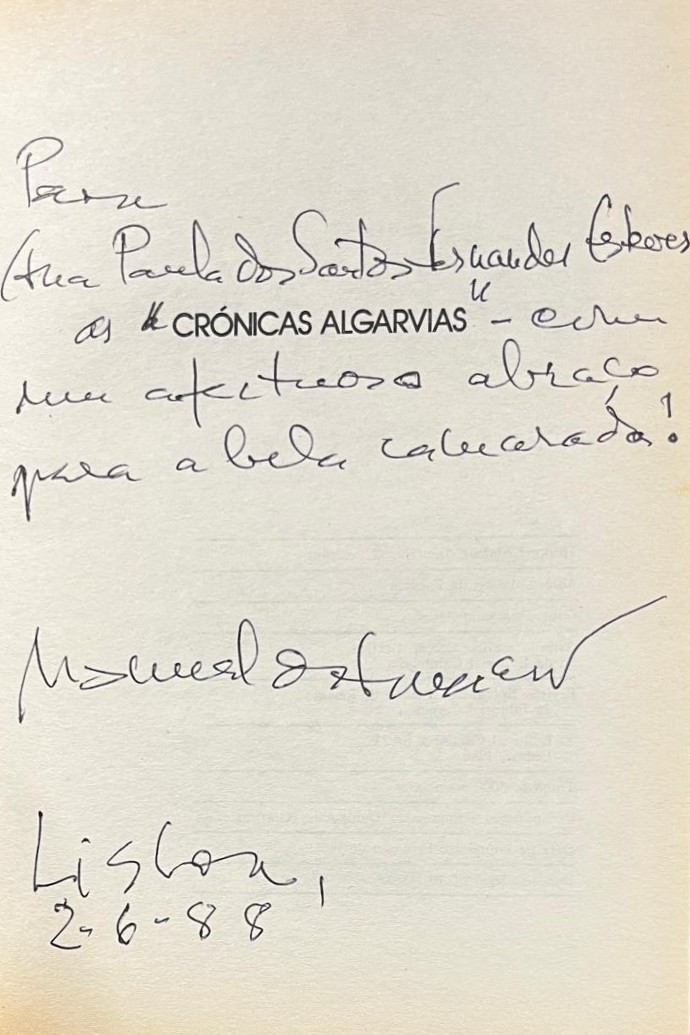 Para
Ana Paula dos Santos Fernandes Esteves
as "CRÓNICAS ALGARVIAS" - com
um afectuoso abraço
para a bela camarada!
Manuel da Fonseca
Lisboa,
2-6-88